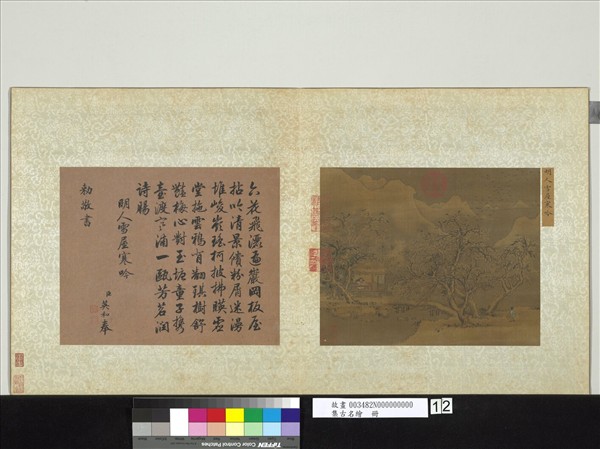 六花飛灑遍巖岡板屋
拈吟清景償粉屑迷湯
堆峻嶺瓊柯披拂映虛
堂拖雲鴉背翻琪樹舒
豔梅心對玉塘童子攜
壺渡
浦一甌芳茗潤
詩腸
明人雪屋寒吟
臣英和奉
勅敬書
明人雪屋寒吟
故畫 003482N000000000
集古名繪 冊
12
TIFFEN Color Control Patches